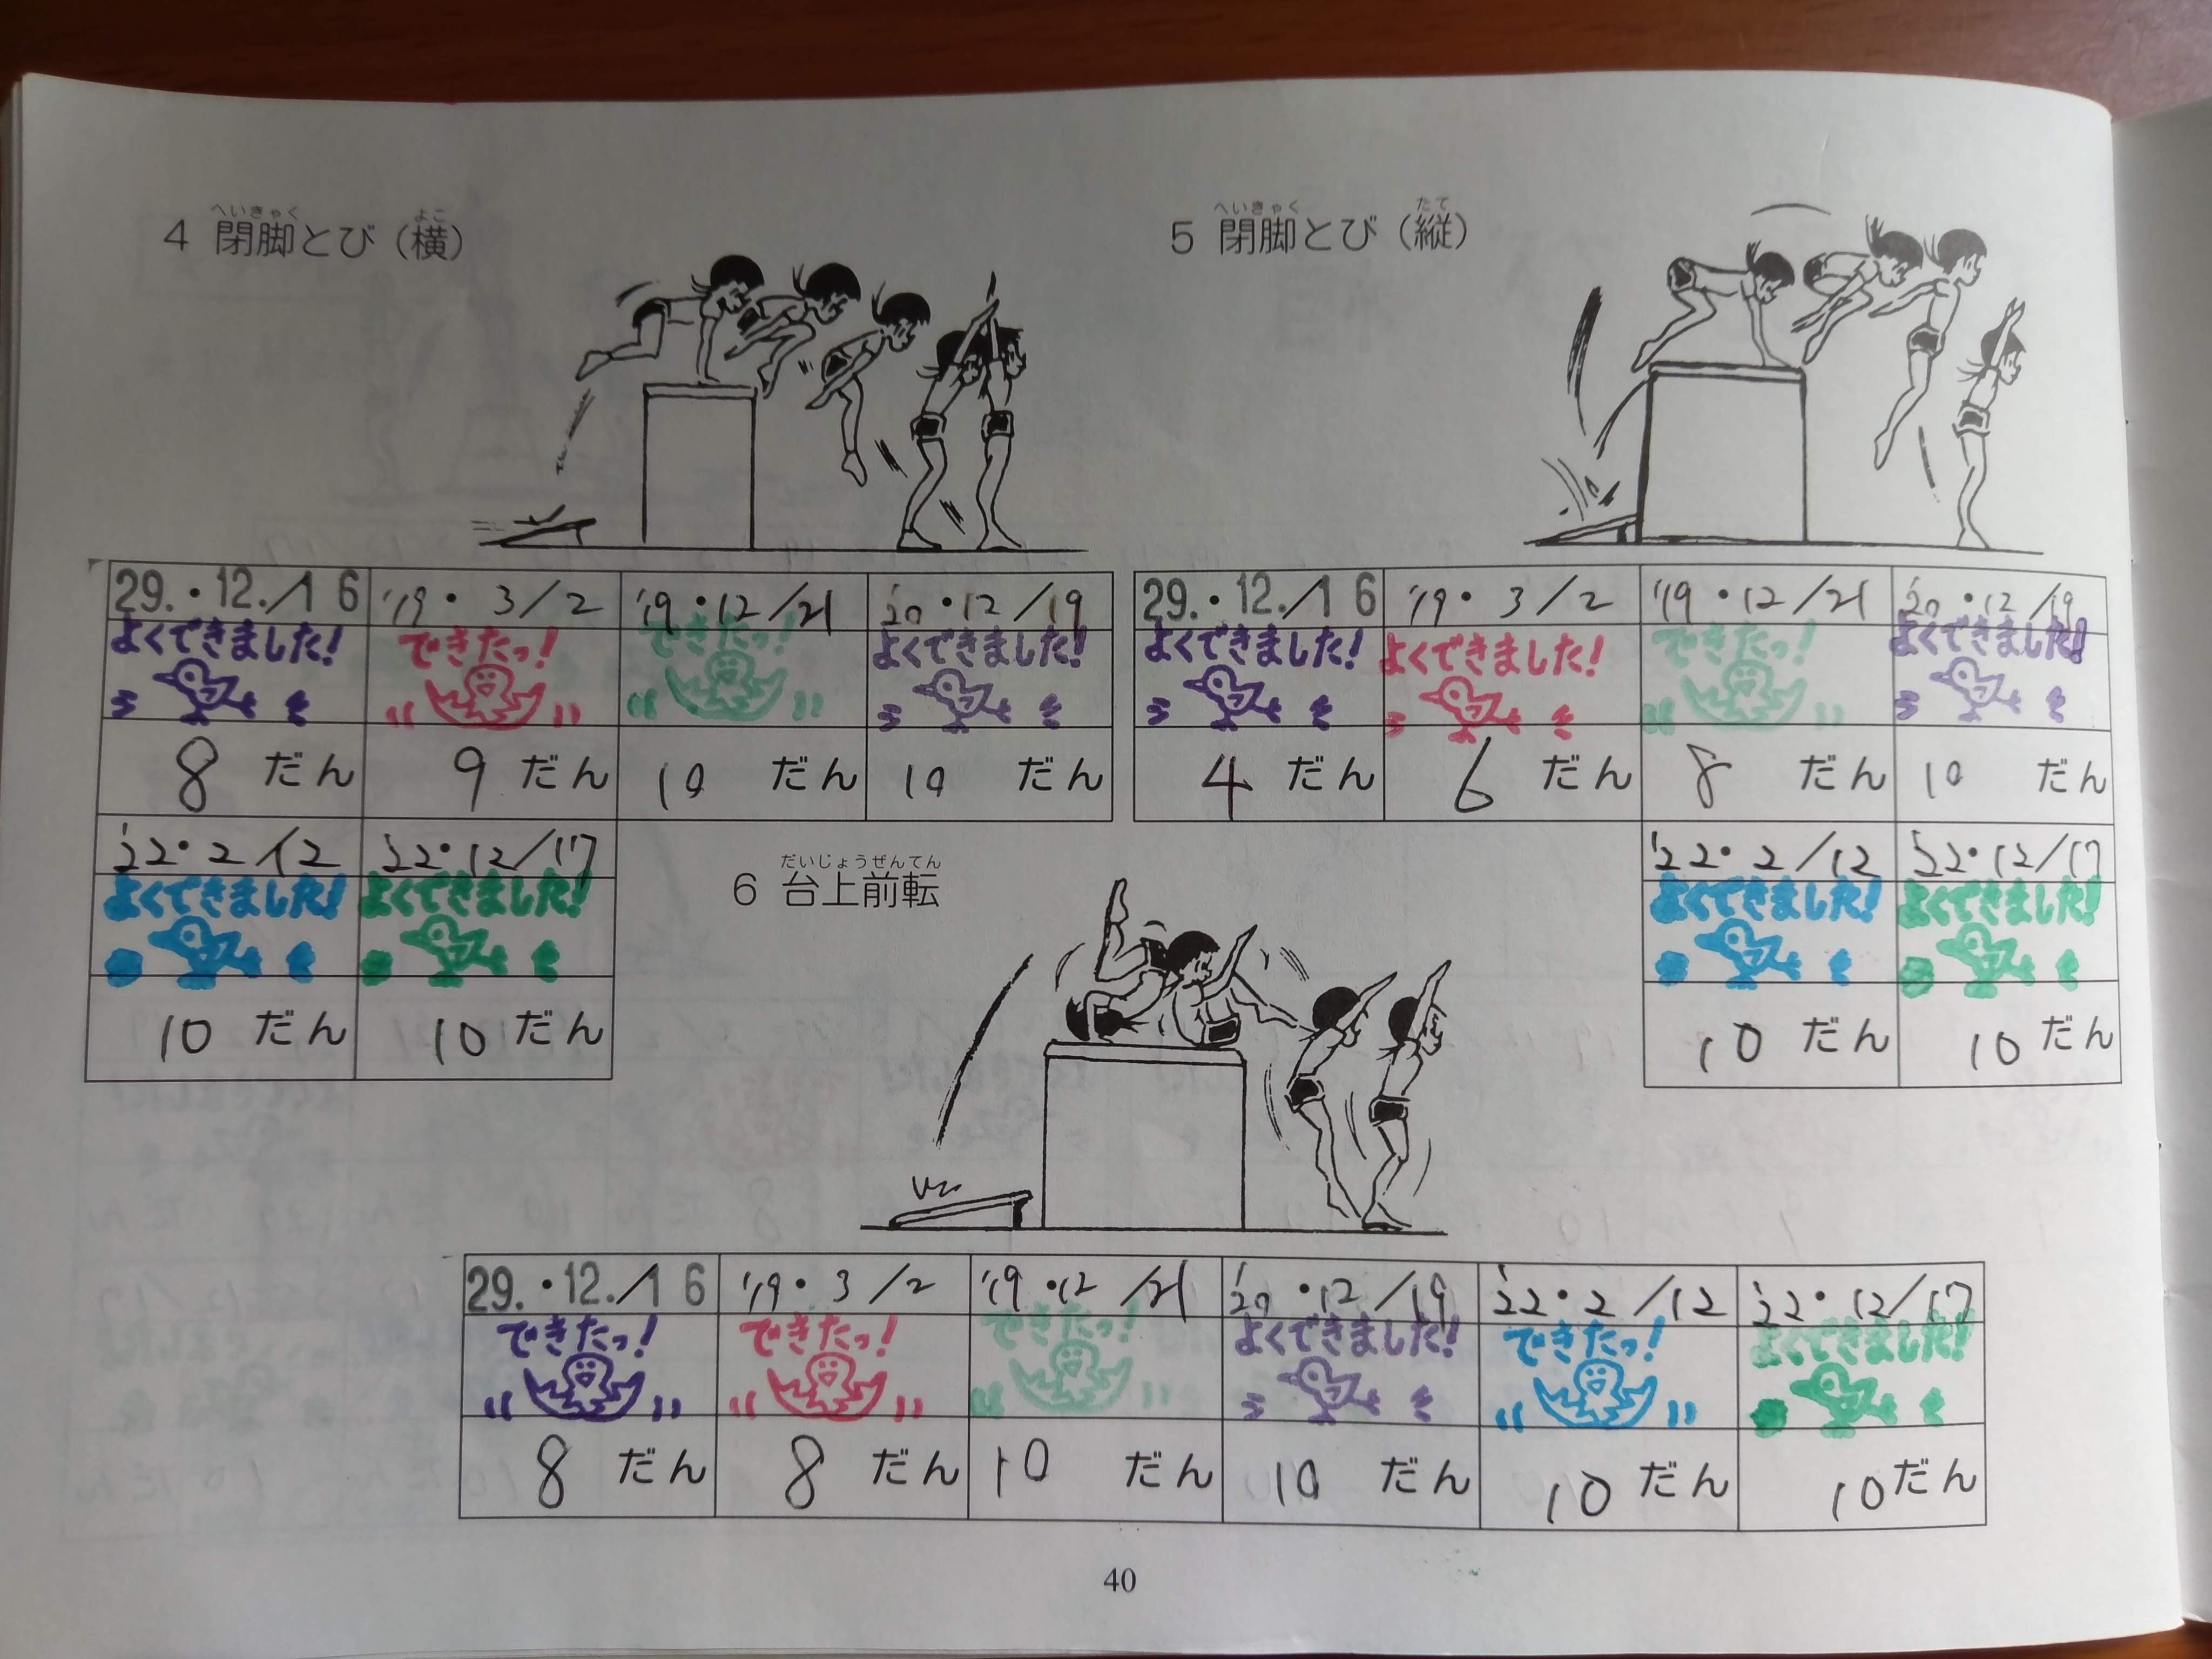 4 閉脚とび（横）
へいきゃく よこ
29.・12./16 '19・3/2 '19・12/21 '20・12/19
よくできました! できたっ! できたっ! よくできました!
8 だん 9 だん 10 だん 10 だん
'22・2/12 '22・12/17
よくできました! よくできました!
10 だん 10 だん
5 閉脚とび（縦）
へいきゃく たて
29.・12./16 '19・3/2 '19・12/21 '20・12/19
よくできました! よくできました! できたっ! よくできました!
4 だん 6 だん 8 だん 10 だん
'22・2/12 '22・12/17
よくできました! よくできました!
10 だん 10 だん
だいじょうぜんてん
6 台上前転
29.・12./16 '19・3/2 '19・12/21 '20・12/19 '22・2/12 '22・12/17
できたっ! できたっ! できたっ! よくできました! できたっ! よくできました!
8 だん 8 だん 10 だん 10 だん 10 だん 10 だん
40